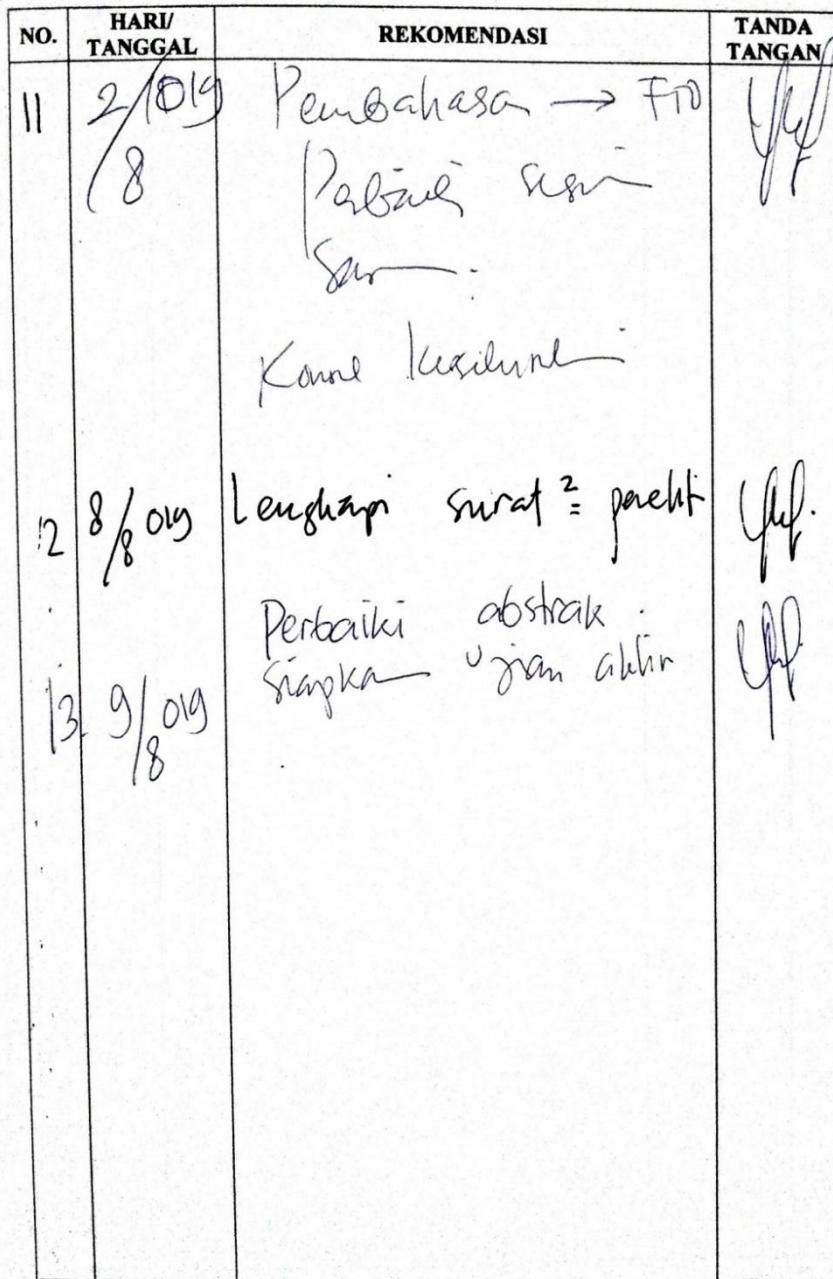 NO. HARI/ TANGGAL REKOMENDASI TANDA TANGAN
11 2/8 019 Pembahasan → FTO
Perbaiki sesuai
Saran.
Konsul
12 8/8 019 Lengkapi surat² penelit
Perbaiki abstrak.
13. 9/8 019 Siapkan Ujian akhir